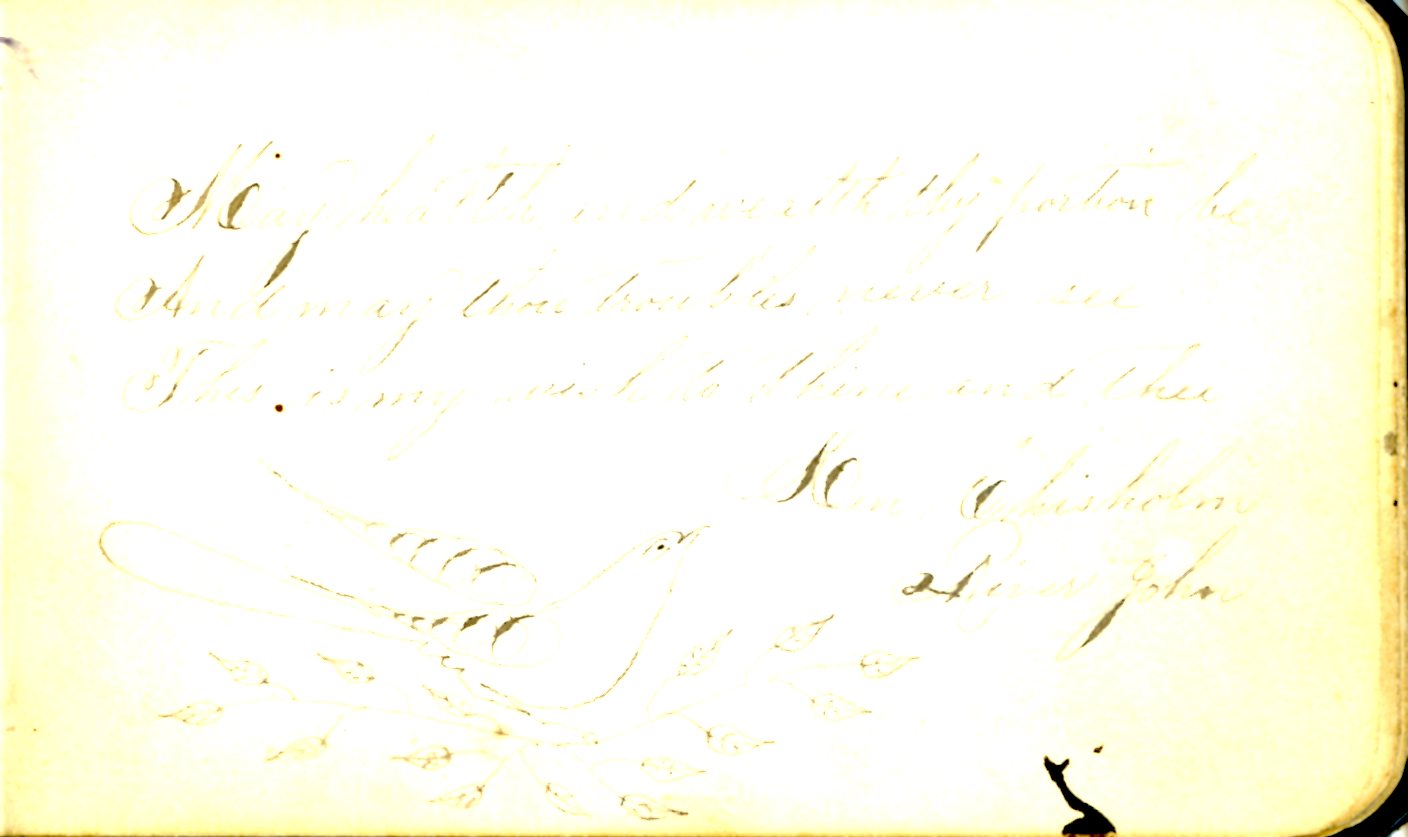 May health and wealth thy portion be
And may thou troubles never see
This is my wish to thine and thee
Wm Chisholm
River John